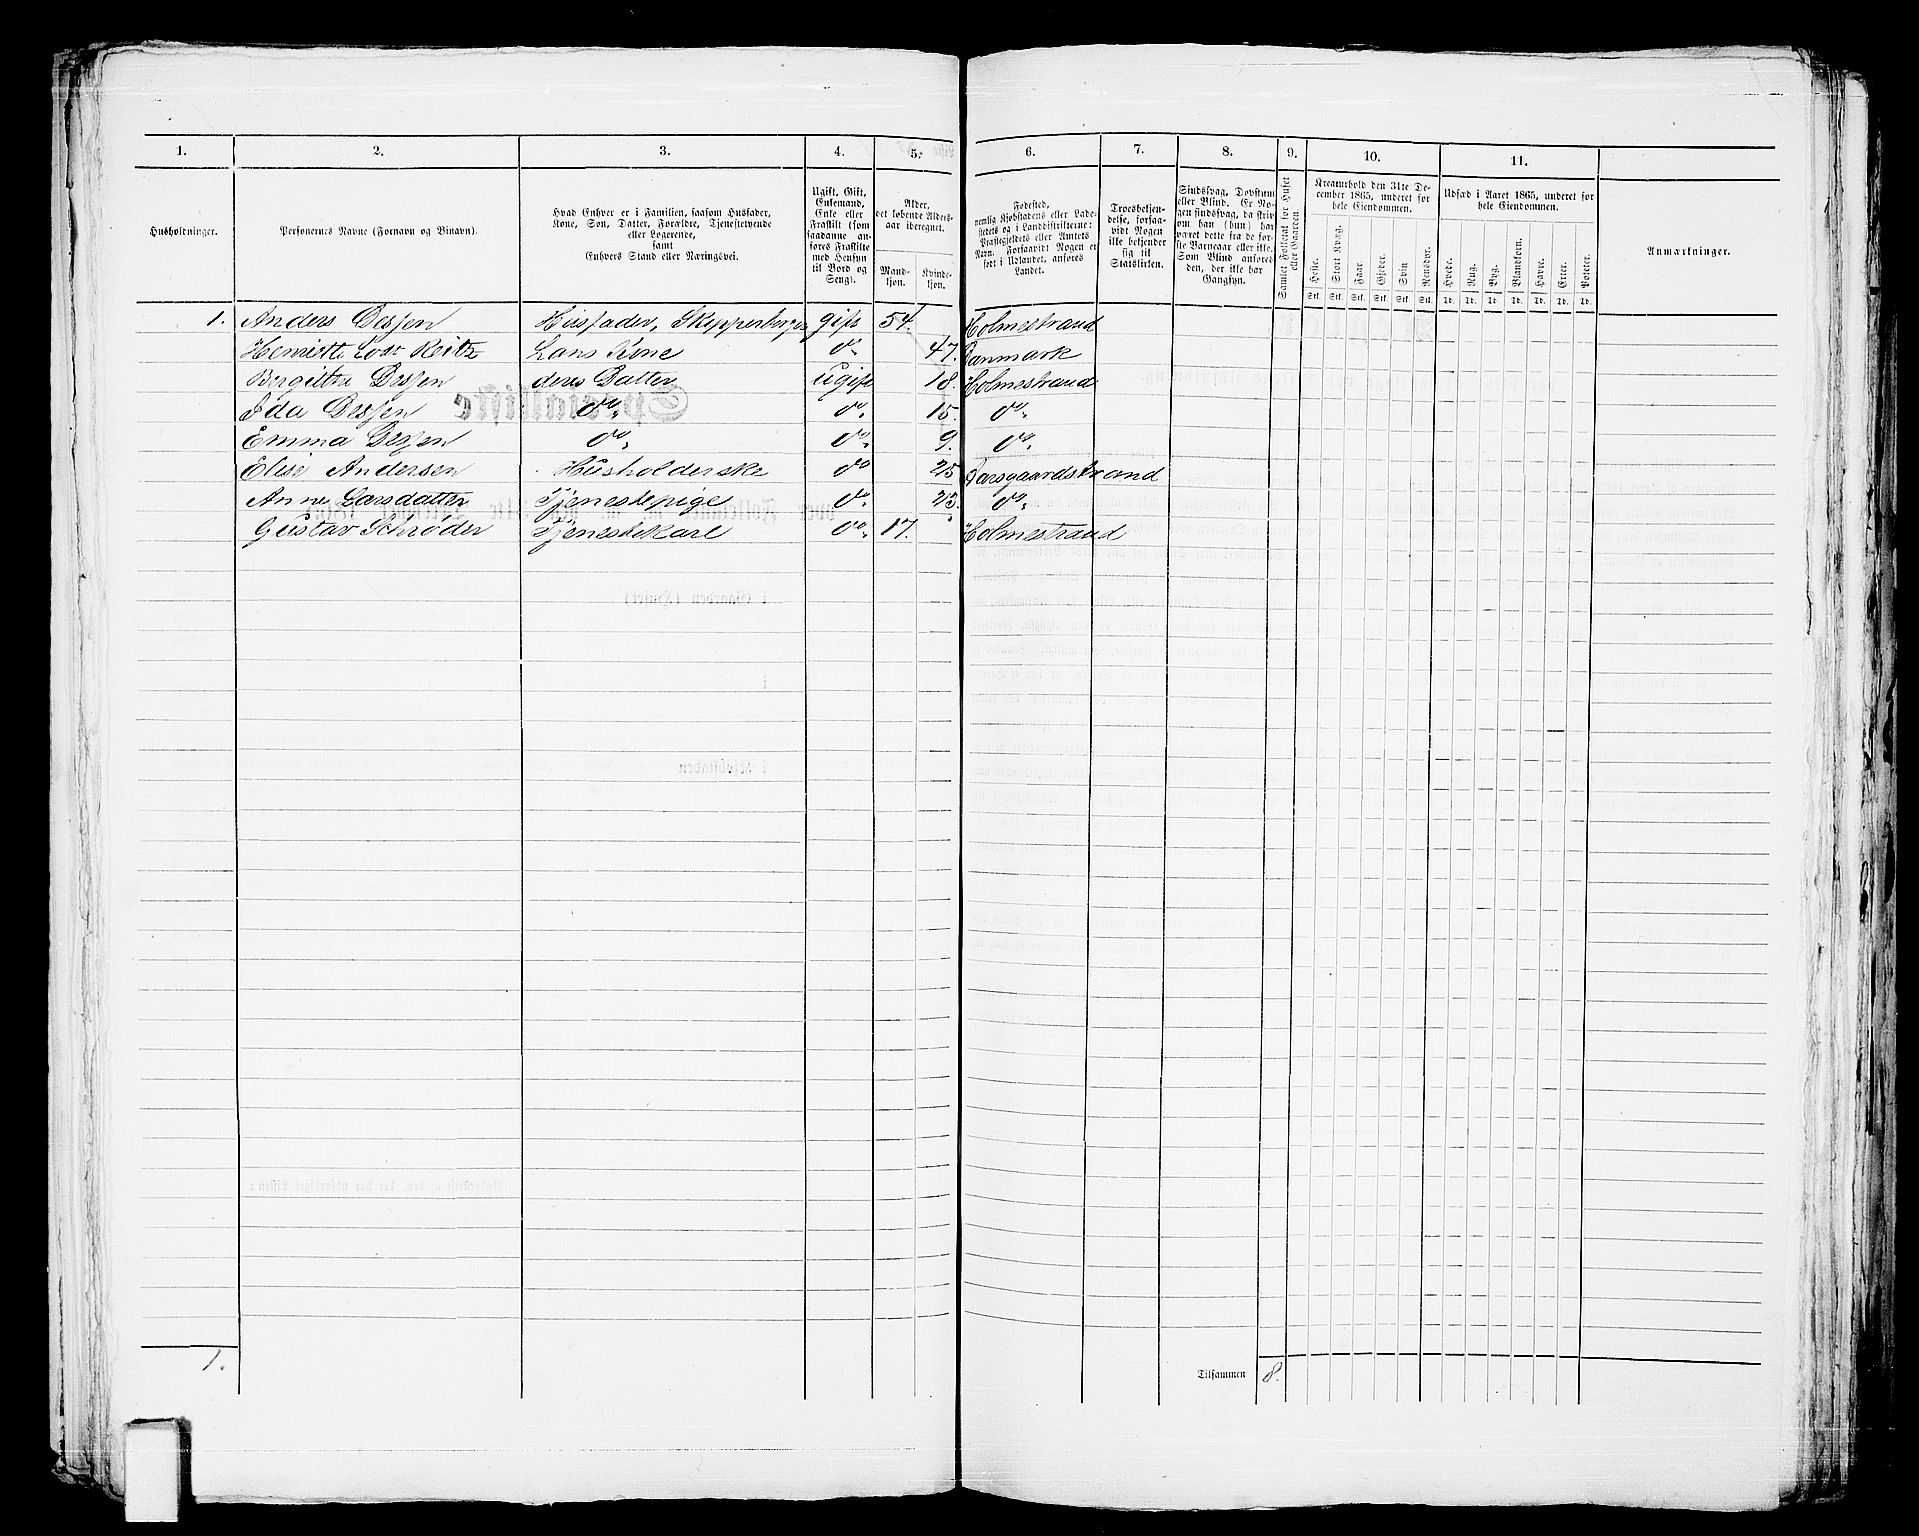 1. 2. 3. 4. 5. 6. 7. 8. 9. 10. 11.
Husholdninger.
Personernes Navne (Fornavn og Binavn).
Hvad Enhver er i Familien, saasom Husfader,
Kone, Søn, Datter, Forældre, Tjenestetyende
eller Logerende,
samt
Enhvers Stand eller Næringsvei.
Ugift, Gift,
Enkemand,
Enke eller
Fraskilt (som
saadanne an-
føres Fraskilte
med Hensyn
til Bord og
Seng).
Alder,
det løbende Alders-
aar iberegnet.
Mand-
kjøn.
Kvinde-
kjøn.
Fødested,
nemlig Kjøbstadens eller Lade-
stedets og i Landdistrikterne:
Præstegjeldets eller Amtets
Navn. Forsaavidt Nogen er
født i Udlandet, anføres
Landet.
Troesbekjen-
delse, forsaa-
vidt Nogen
ikke bekjender
sig til
Statskirken.
Sindssvag, Døvstum
eller Blind. Er No-
gen sindssvag, da skriv
om han (hun) har
været dette fra de før-
ste Barneaar eller ikke.
Som Blind anføres
den, der ikke har
Gangsyn.
Samlet Folketal for Huset
eller Gaarden.
Kreaturhold den 31te De-
cember 1865, underet for
hele Eiendommen.
Heste. Stort Kvæg. Faar. Gjeder. Svin Rensdyr.
Stk. Stk. Stk. Stk. Stk. Stk.
Udsæd i Aaret 1865, underet for
hele Eiendommen.
Hvede. Rug. Byg. Blandkorn. Havre. Erter. Poteter.
Td. Td. Td Td. Td. Td. Td.
Anmærkninger.
1. Anders Dessen Husfader, Skipperborger gift 54. Holmestrand
Henriette Reitz Hans Kone do 47. Danmark
Bergitha Dessen deres Datter ugift 18. Holmestrand
Ida Dessen do do 15. do
Emma Dessen do do 9. do
Elise Andersen Husholderske do 25 Aarsgaardstrand
Anne Larsdatter Tjenestepige do 23. do
Gustav Schrøder Tjenestekarl do 17. Holmestrand
1. Tilsammen 8.